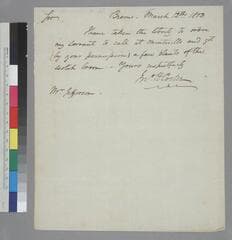 Sir
Browns. March 12th 1803
I have taken the liberty to order
my servant to call at Monticello and get
(by your permission) a few stalks of the
Scotch broom — Yours respectfully
Mr Jefferson